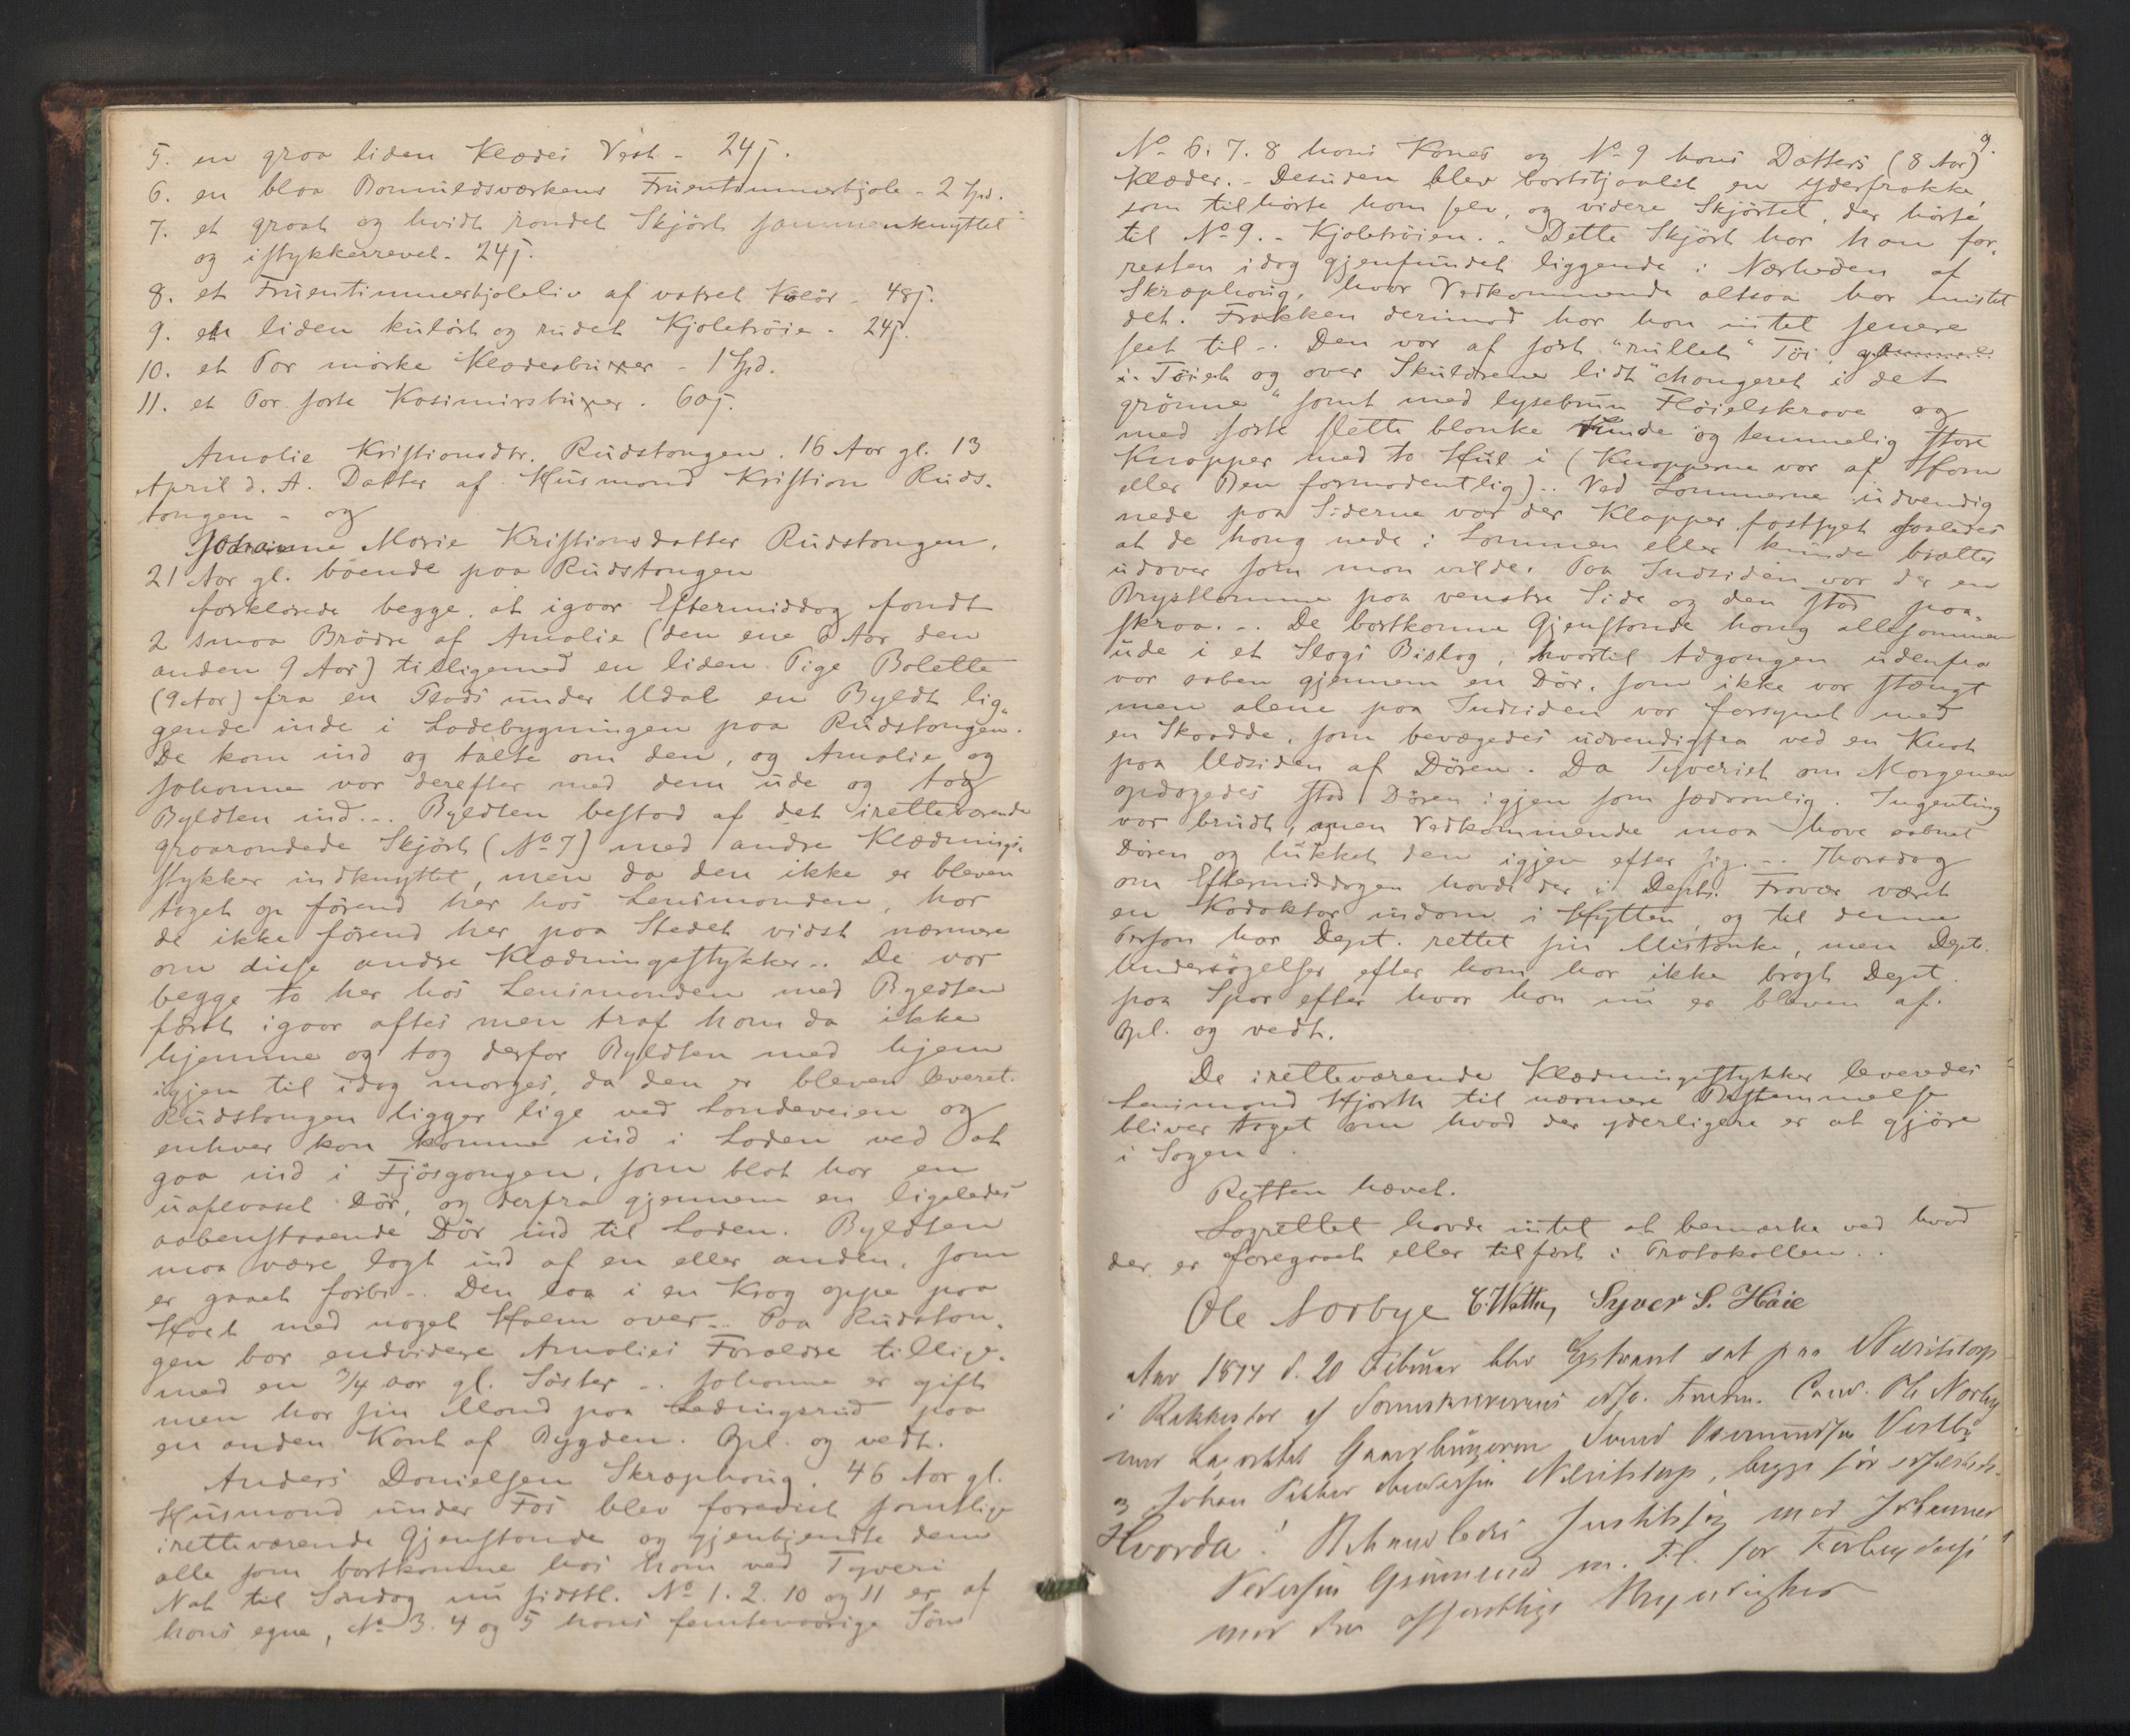 5. en graa liden Klædes Vest - 24 s.
6. en blaa Bomuldsværkens Fruentimmerkjole - 2 Spd.
7. et graat og hvidt randet Skjört sammenknyttet
og istykkerrevet. 24 s.
8. et Fruentimmerkjoleliv af vatret Kulör - 48 s.
9. en liden kulört og rudet Kjoletröie - 24 s.
10. et Par mörke Klædesbuxer - 1 Spd.
11. et Par sorte Kasimirsbuxer. 60 s.
Amalie Kristiansdtr. Rudstangen. 16 Aar gl. 13
April d. A. Datter af Husmand Kristian Ruds-
tangen - og
Johanne Marie Kristiansdatter Rudstangen,
21 Aar gl. boende paa Rudstangen
forklarede begge, at igaar Eftermiddag fandt
2 smaa Brödre af Amalie (den ene 6 Aar den
anden 9 Aar) tilligemed en liden Pige Bolette
(9 Aar) fra en Plads under Udal en Byldt lig-
gende inde i Ladebygningen paa Rudstangen.
De kom ind og talte om den, og Amalie og
Johanne var derefter med dem ude og tog
Byldten ind. - Byldten bestod af det iretteværende
graarandede Skjört (No 7) med andre Klædnings-
stykker indknyttet, men da den ikke er bleven
taget op förend her hos Lensmanden, har
de ikke förend her paa Stedet vidst nærmere
om disse andre Klædningsstykker. De var
begge to her hos Lensmanden med Byldten
först igaar aftes men traf ham da ikke
hjemme og tog derfor Byldten med hjem
igjen til idag morges, da den er bleven leveret.
Rudstangen ligger lige ved Landeveien og
enhver kan komme ind i Laden ved at
gaa ind i Fjösgangen, som blot har en
uaflaaset Dör, og derfra gjennem en ligeledes
aabenstaaende Dör ind til Laden. Byldten
maa være lagt ind af en eller anden, som
er gaaet forbi -. Den laa i en Krog oppe paa
Höet med noget Halm over. - Paa Rudstan-
gen bor endvidere Amalies Forældre tillige-
med en 3/4 aar gl. Söster -. Johanne er gift
men har sin Mand paa Ledingsrud paa
en anden Kant af Bygden. Opl. og vedt.
Anders Danielsen Skræphaug, 46 Aar gl.
Husmand under Fos blev forevist samtlige
iretteværende Gjenstande og gjenkjendte dem
alle som bortkomne hos ham ved Tyveri
Nat til Söndag nu sidstl. No 1. 2. 10 og 11 er af
hans egne, No 3. 4 og 5 hans femtenaarige Söns
9.
No 6. 7. 8 hans Kones og No 9 hans Datters (8 Aar)
Klæder. - Desuden blev bortstjaalet en Yderfrakke,
som tilhörte ham selv, og videre Skjörtet, der hörte
til No 9. - Kjoletröien. - Dette Skjört har han for-
resten idag gjenfundet liggende i Nærheden af
Skræphaug, hvor Vedkommende altsaa har mistet
det. Frakken derimod har han intet senere
seet til -. Den var af sort "rullet" Töi
i Töiet og over Skuldrene lidt "changeret i det
grönne" samt med lysebrun Flöielskrave og
med sorte slette blanke runde og temmelig store
Knapper med to Hul i (Knapperne var af Horn
eller Ben formodentlig). Ved Lommerne udvendig
nede paa Siderne var der Klapper fastsyet saaledes
at de hang nede i Lommen eller kunde brættes
udover som man vilde. Paa Indsiden var der en
Brystlomme paa venstre Side og den stod paa-
skraa. - De bortkomne Gjenstande hang allesammen
ude i et Slags Bislag, hvortil Adgangen udenfra
var aaben gjennem en Dör, som ikke var stængt
men alene paa Indsiden var forsynet med
en Skaadde, som bevægedes udvendigfra ved en Knot
paa Udsiden af Dören. Da Tyveriet om Morgenen
opdagedes stod Dören igjen som sædvanlig. Ingenting
var brudt, men Vedkommende maa have aabnet
Dören og lukket den igjen efter sig. - Thorsdag
om Eftermiddagen havde der i Depts. Fravær været
en indom i Hytten, og til denne
Person har Dept. rettet sin Mistanke, men Depts.
Undersögelser efter ham har ikke bragt Dept.
paa Spor efter hvor han nu er bleven af.
Opl. og vedt.
De iretteværende Klædningsstykker leveredes
Lensmand Hjorth til nærmere Bestemmelse
bliver taget om hvad der yderligere er at gjöre
i Sagen.
Retten hævet.
Lagrettet havde intet at bemærke ved hvad
der er foregaaet eller tilfört i Protokollen.
Ole Norbye Syver S. Høie
Aar 1874 d. 20 Februar blev Extraret sat paa
i Rakkestad af Sorenskriverens Cand. Ole Norbye
med Lagrettet Gaardbrugerne Svend
og Johan Petter Andersen , begge för edfæstede.
Hvorda: Behandledes Justitssag mod Johannes
Pedersen m. Fl. for
mod den offentlige Myndighed